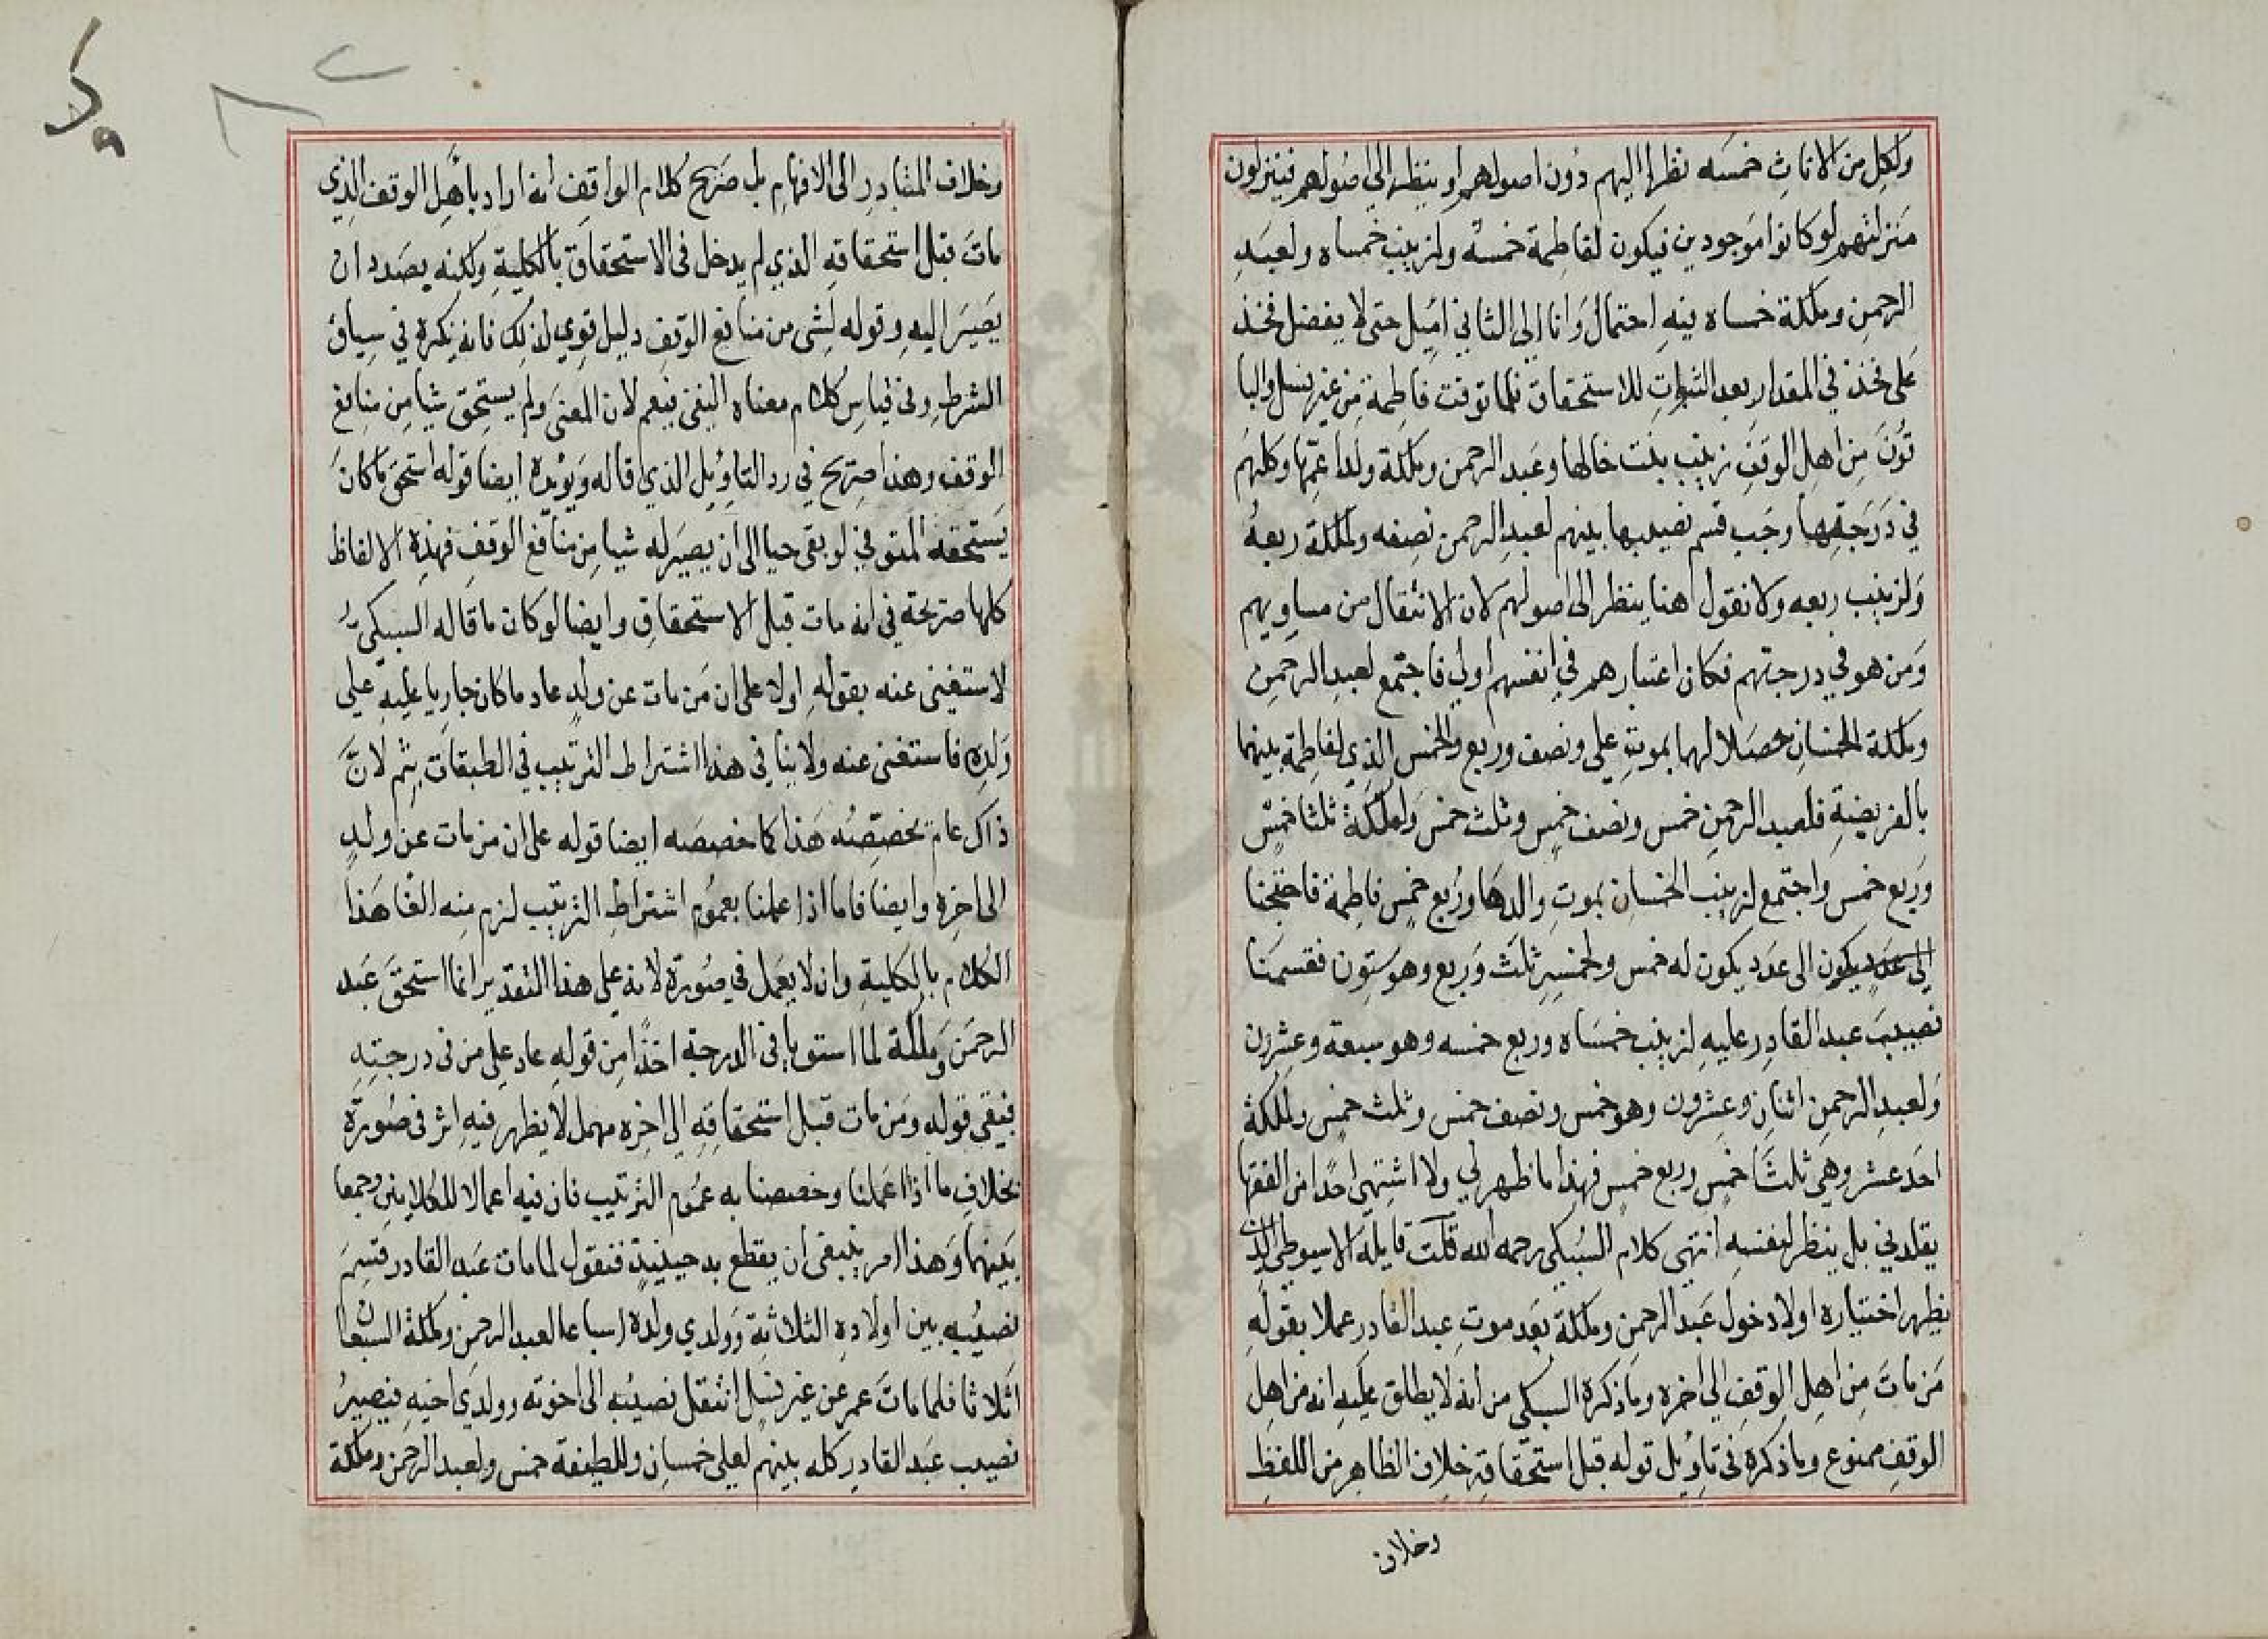 ولكل من الاناث خمسه نظرا اليهم دون اصولهم او ينظر الى اصولهم فينزلون
منزلتهم لو كانوا موجودين فيكون لفاطمة خمسه ولزينب خمساه ولعبد
الرحمن وملكة خمساه فيه احتمال وانا الى الثاني اميل حتى لا يفضل فخذ
على فخذ في المقدار بعد الثبوت للاستحقاق فلما توفت فاطمة من غير نسل والبا
قون من اهل الوقف زينب بنت خالها وعبد الرحمن وملكة ولدا عمها وكلهم
في درجتها وجب قسم نصيبها بينهم لعبد الرحمن نصفه ولملكة ربعه
ولزينب ربعه ولا نقول هنا ينظر الى اصولهم لان الانتقال من مساويهم
ومن هو في درجتهم فكان اعتبارهم في انفسهم اولى فاجتمع لعبد الرحمن
وملكة الخمسان حصلا لهما بموت علي ونصف وربع والخمس الذي لفاطمة بينهما
بالفريضة فلعبد الرحمن خمس ونصف خمس وثلث خمس ولملكة ثلثا خمس
وربع خمس واجتمع لزينب الخمسان بموت والدها وربع خمس فاطمة فاحتجنا
الى عدد يكون الى عدد يكون له خمس ولخمسه ثلث وربع وهو ستون فقسمنا
نصيب عبد القادر عليه لزينب خمساه وربع خمسه وهو سبعة وعشرون
ولعبد الرحمن اثنان وعشرون وهو خمس ونصف خمس وثلث خمس ولملكة
احد عشر وهي ثلثا خمس وربع خمس فهذا ما ظهر لي ولا اشتهي احدا من الفقها
يقلدني بل ينظر لنفسه انتهى كلام السبكي رحمه الله قلت قايله الاسيوطي الذي
يظهر اختياره اولا دخول عبد الرحمن وملكة بعد موت عبد القادر عملا بقوله
من مات من اهل الوقف الى اخره وما ذكره السبكي من انه لا يطلق عليه انه من اهل
الوقف ممنوع وما ذكره في تاويل قوله قبل استحقاقه خلاف الظاهر من اللفظ
وخلاف
وخلاف المتبادر الى الافهام بل صريح كلام الواقف انه اراد باهل الوقف الذي
مات قبل استحقاقه الذي لم يدخل في الاستحقاق بالكلية ولكنه بصدد ان
يصير اليه وقوله لشي من منافع الوقف دليل قوي لذلك فانه نكرة في سياق
الشرط وفي قياس كلام معناه النفي فيعم لان المعنى ولم يستحق شيا من منافع
الوقف وهذا صريح في رد التاويل الذي قاله ويؤيده ايضا قوله استحق ما كان
يستحقه المتوفي لو بقي حيا الى ان يصير له شيا من منافع الوقف فهذه الالفاظ
كلها صريحة في انه مات قبل الاستحقاق وايضا لو كان ما قاله السبكي
لاستغنى عنه بقوله اولا على ان من مات عن ولد عاد ما كان جاريا عليه على
ولده فاستغنى عنه ولا ينافي هذا اشتراط الترتيب في الطبقات بثم لان
ذاك عام تخصصه هذا كما خصصه ايضا قوله على ان من مات عن ولد
الى اخره وايضا فاما اذا عملنا بعموم اشتراط الترتيب لزم منه الغا هذا
الكلام بالكلية وان لا يعمل في صورة لانه على هذا التقدير انما استحق عبد
الرحمن وملكة لما استويا في الدرجة اخذا من قوله عاد على من في درجته
فبقي قوله ومن مات قبل استحقاقه الى اخره مهمل لا يظهر فيه اثر في صورة
بخلاف ما اذا اعملنا وخصصنا به عموم الترتيب فان فيه اعمالا للكلامين وجمعا
بينهما وهذا امر ينبغي ان يقطع به حينيذ فنقول لما مات عبد القادر قسم
نصيبه بين اولاده الثلاثة وولدي ولده اسباعا لعبد الرحمن وملكة السبعان
اثلاثا فلما مات عمر عن غير نسل انتقل نصيبه الى اخوته وولدي اخيه فيصير
نصيب عبد القادر كله بينهم لعلي خمسان وللطيفة خمس ولعبد الرحمن وملكة